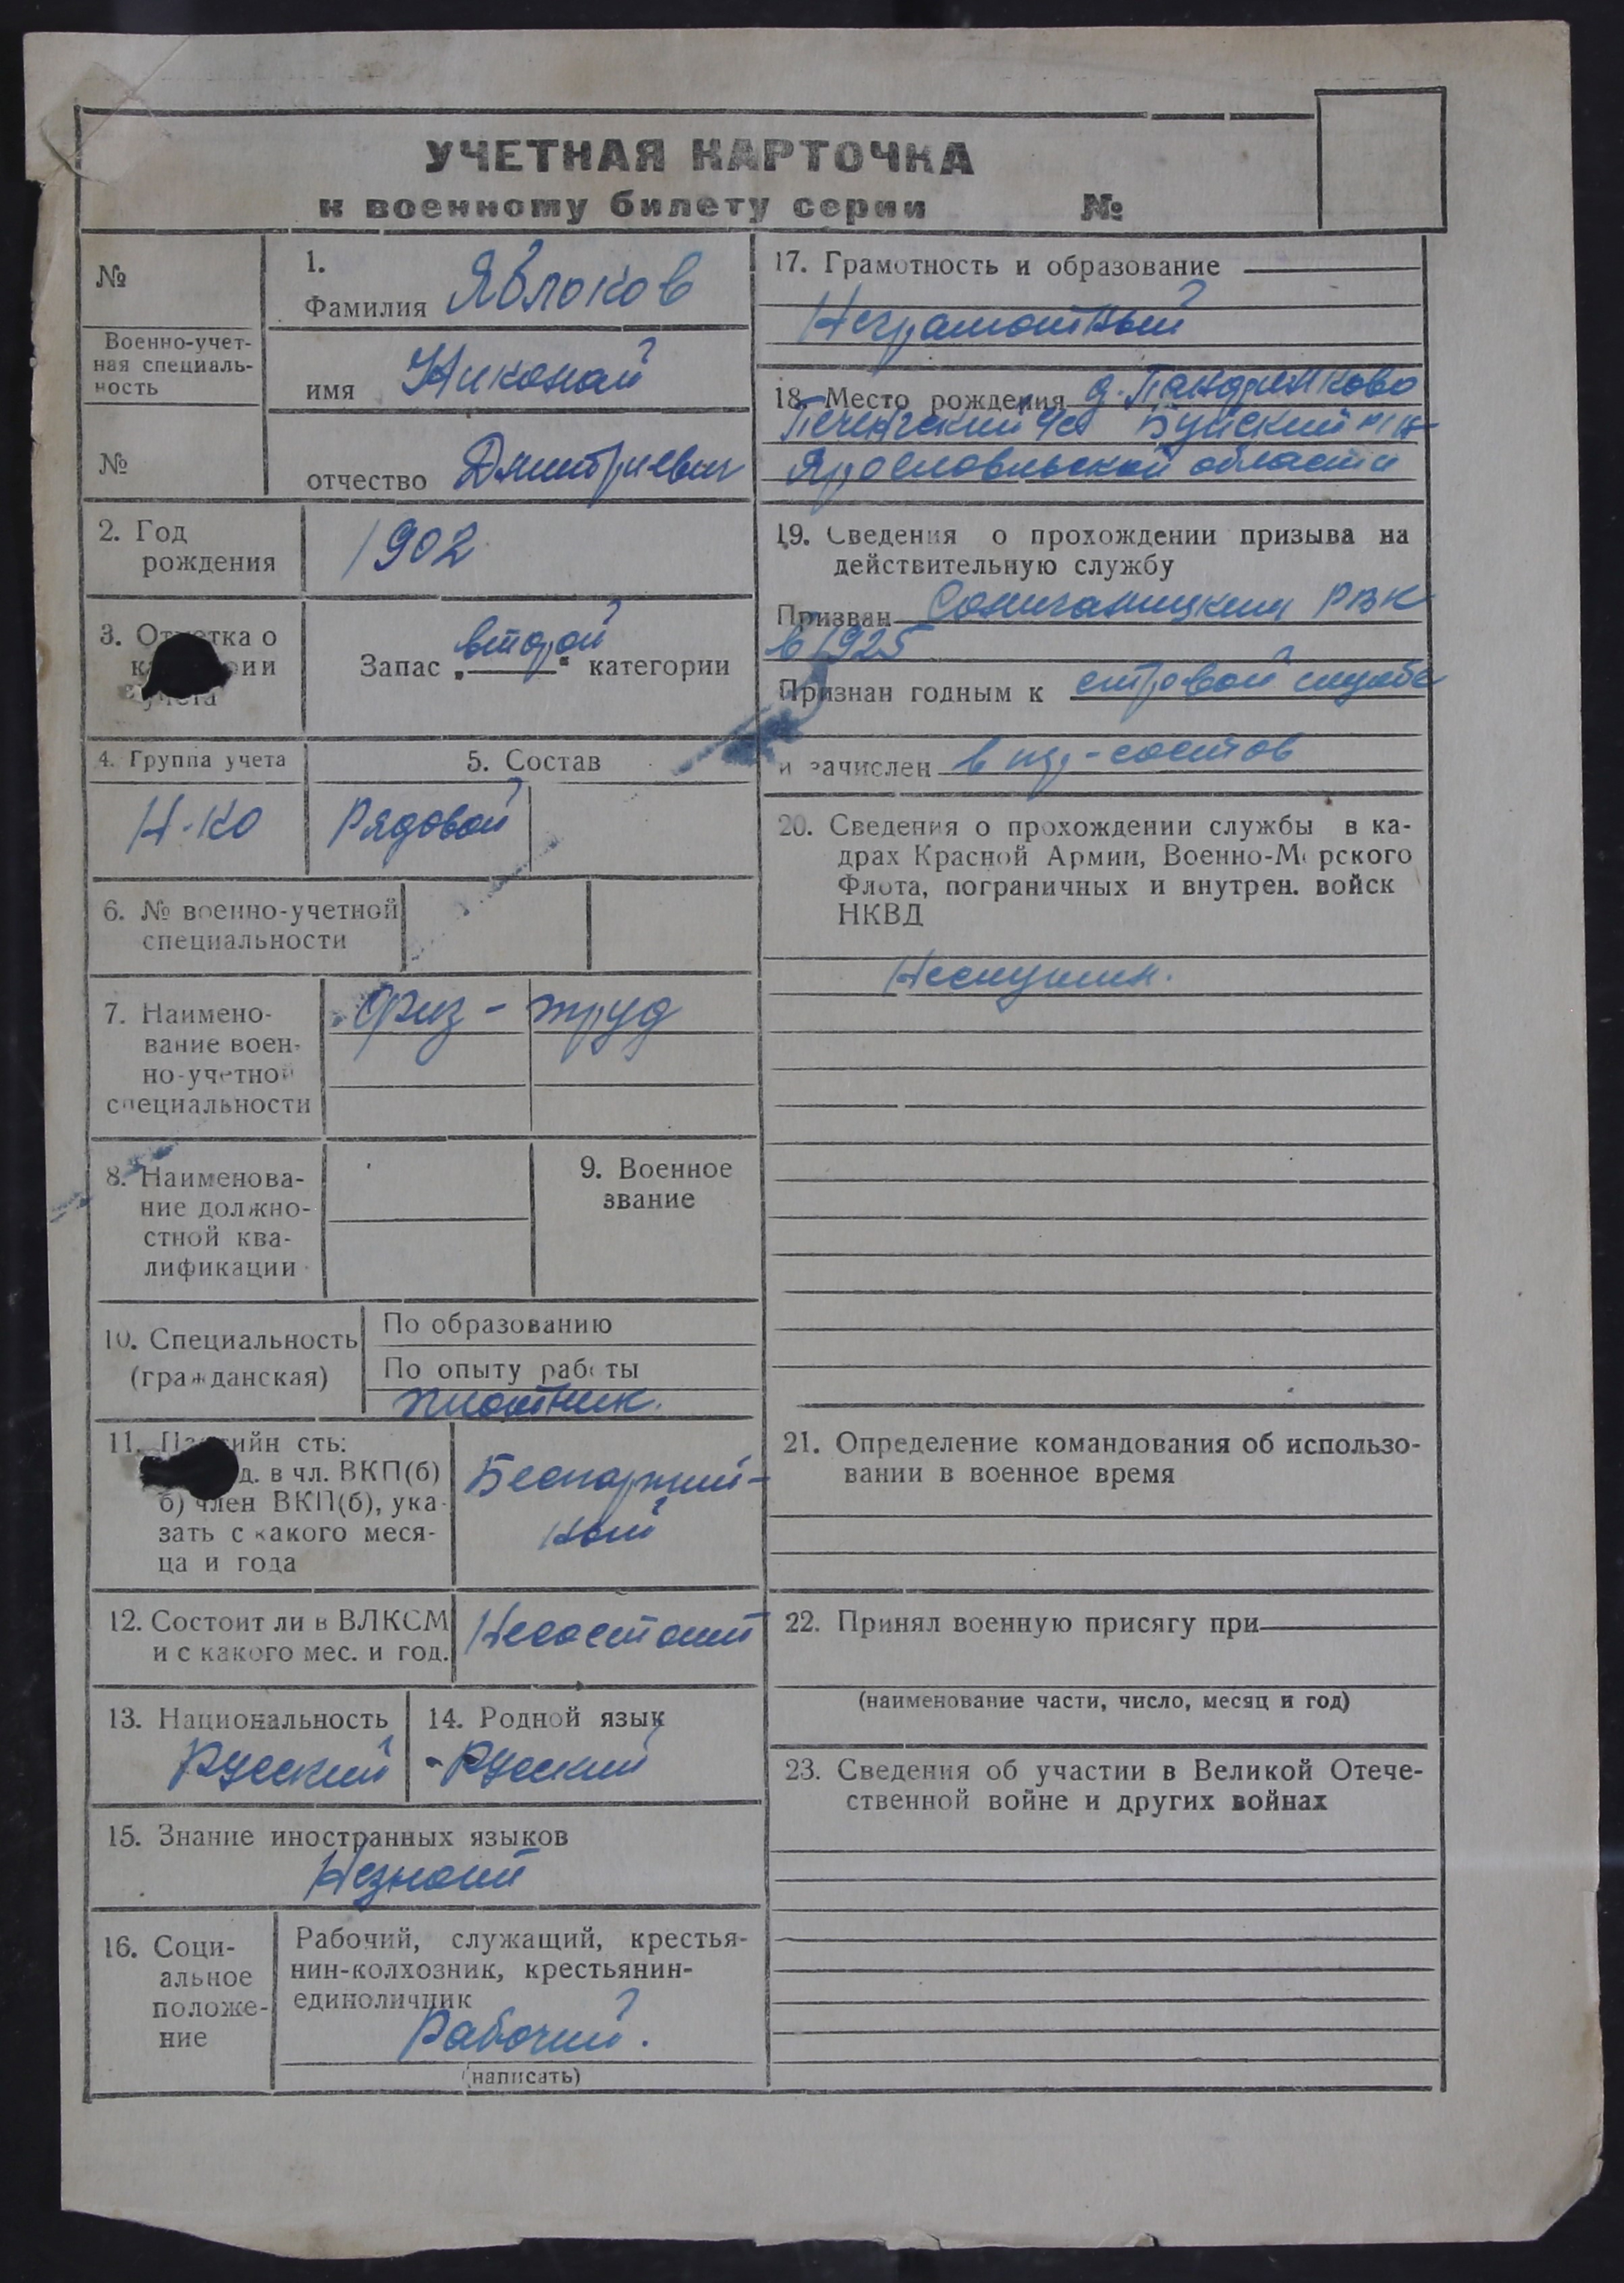 УЧЕТНАЯ КАРТОЧКА
к военному билету серии №
№
Военно-учет-
ная специаль-
ность
№
1.
Фамилия Яблоков
имя Николай
отчество Дмитриевич
2. Год
рождения
1902
3. Отметка о
категории
учета
второй
Запас „ “ категории
4. Группа учета
Н-КО
5. Состав
Рядовой
6. № военно-учетной
специальности
7. Наимено-
вание воен-
но-учетной
специальности
физ-труд
8. Наименова-
ние должно-
стной ква-
лификации
9. Военное
звание
10. Специальность
(гражданская)
По образованию
По опыту работы
плотник.
11. Партийн сть:
д. в чл. ВКП(б)
б) член ВКП(б), ука-
зать с какого меся-
ца и года
Беспартий-
ный
12. Состоит ли в ВЛКСМ
и с какого мес. и год.
Несостоит
13. Национальность
Русский
14. Родной язык
-Русский
15. Знание иностранных языков
Незнает
16. Соци-
альное
положе-
ние
Рабочий, служащий, крестья-
нин-колхозник, крестьянин-
единоличник
Рабочий.
(написать)
17. Грамотность и образование
Неграмотный
18. Место рождения д.
Буйский
Ярославльской области
19. Сведения о прохождении призыва на
действительную службу
Призван Солигалицким РВК
в 1925
Признан годным к строевой службе
и зачислен в
20. Сведения о прохождении службы в ка-
драх Красной Армии, Военно-Морского
Флота, пограничных и внутрен. войск
НКВД
Неслужил.
21. Определение командования об использо-
вании в военное время
22. Принял военную присягу при
(наименование части, число, месяц и год)
23. Сведения об участии в Великой Отече-
ственной войне и других войнах